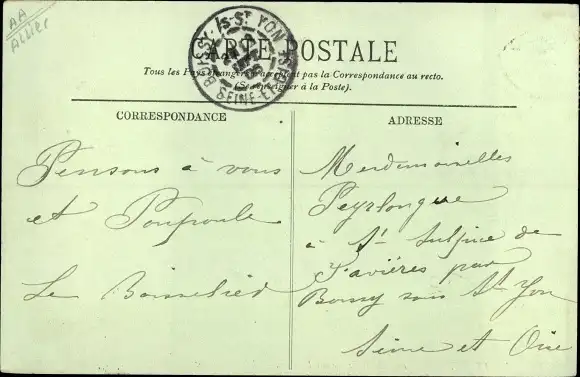 AA
Allier
BOISSY-/S-ST YON
SEINE-ET-OISE
CARTE POSTALE
Tous les Pays étrangers n'acceptent pas la Correspondance au recto.
(Se renseigner à la Poste).
CORRESPONDANCE
Pensons à vous
et Poupoule
Le Boisselied
ADRESSE
Mesdemoiselles
Peyrlongue
à St Sulpice de
Favières par
Boissy sous St Yon
Seine et Oise